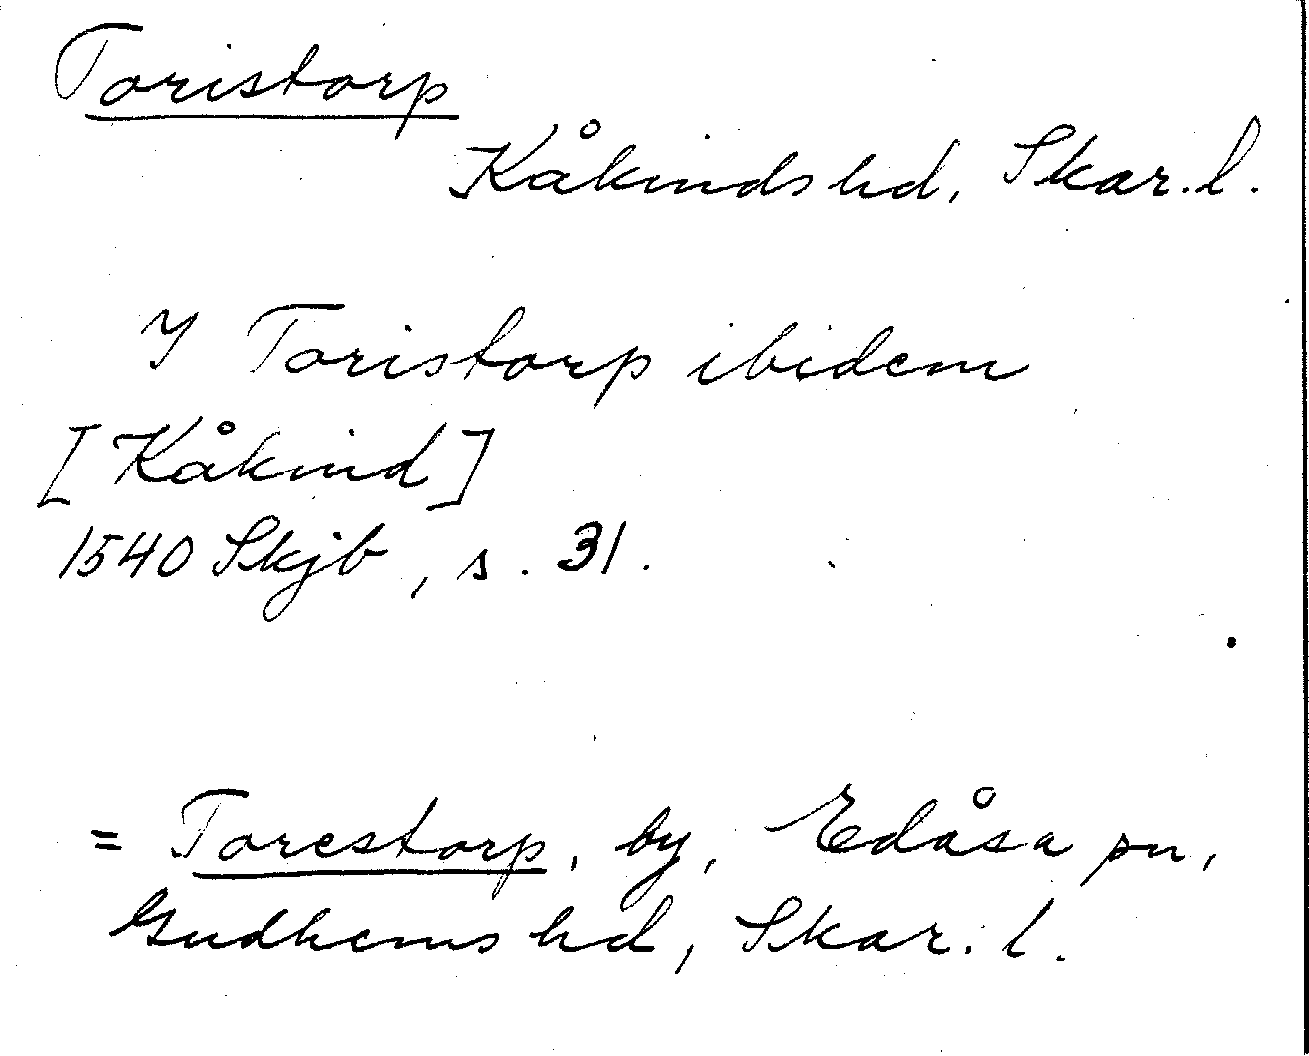 Toristorp
Kåkinds hd, Skar. l.
Y Toristorp ibidem
[Kåkind]
1540 Skjb, s. 31.
= Torestorp, by, Edåsa sn,
Gudhems hd, Skar. l.